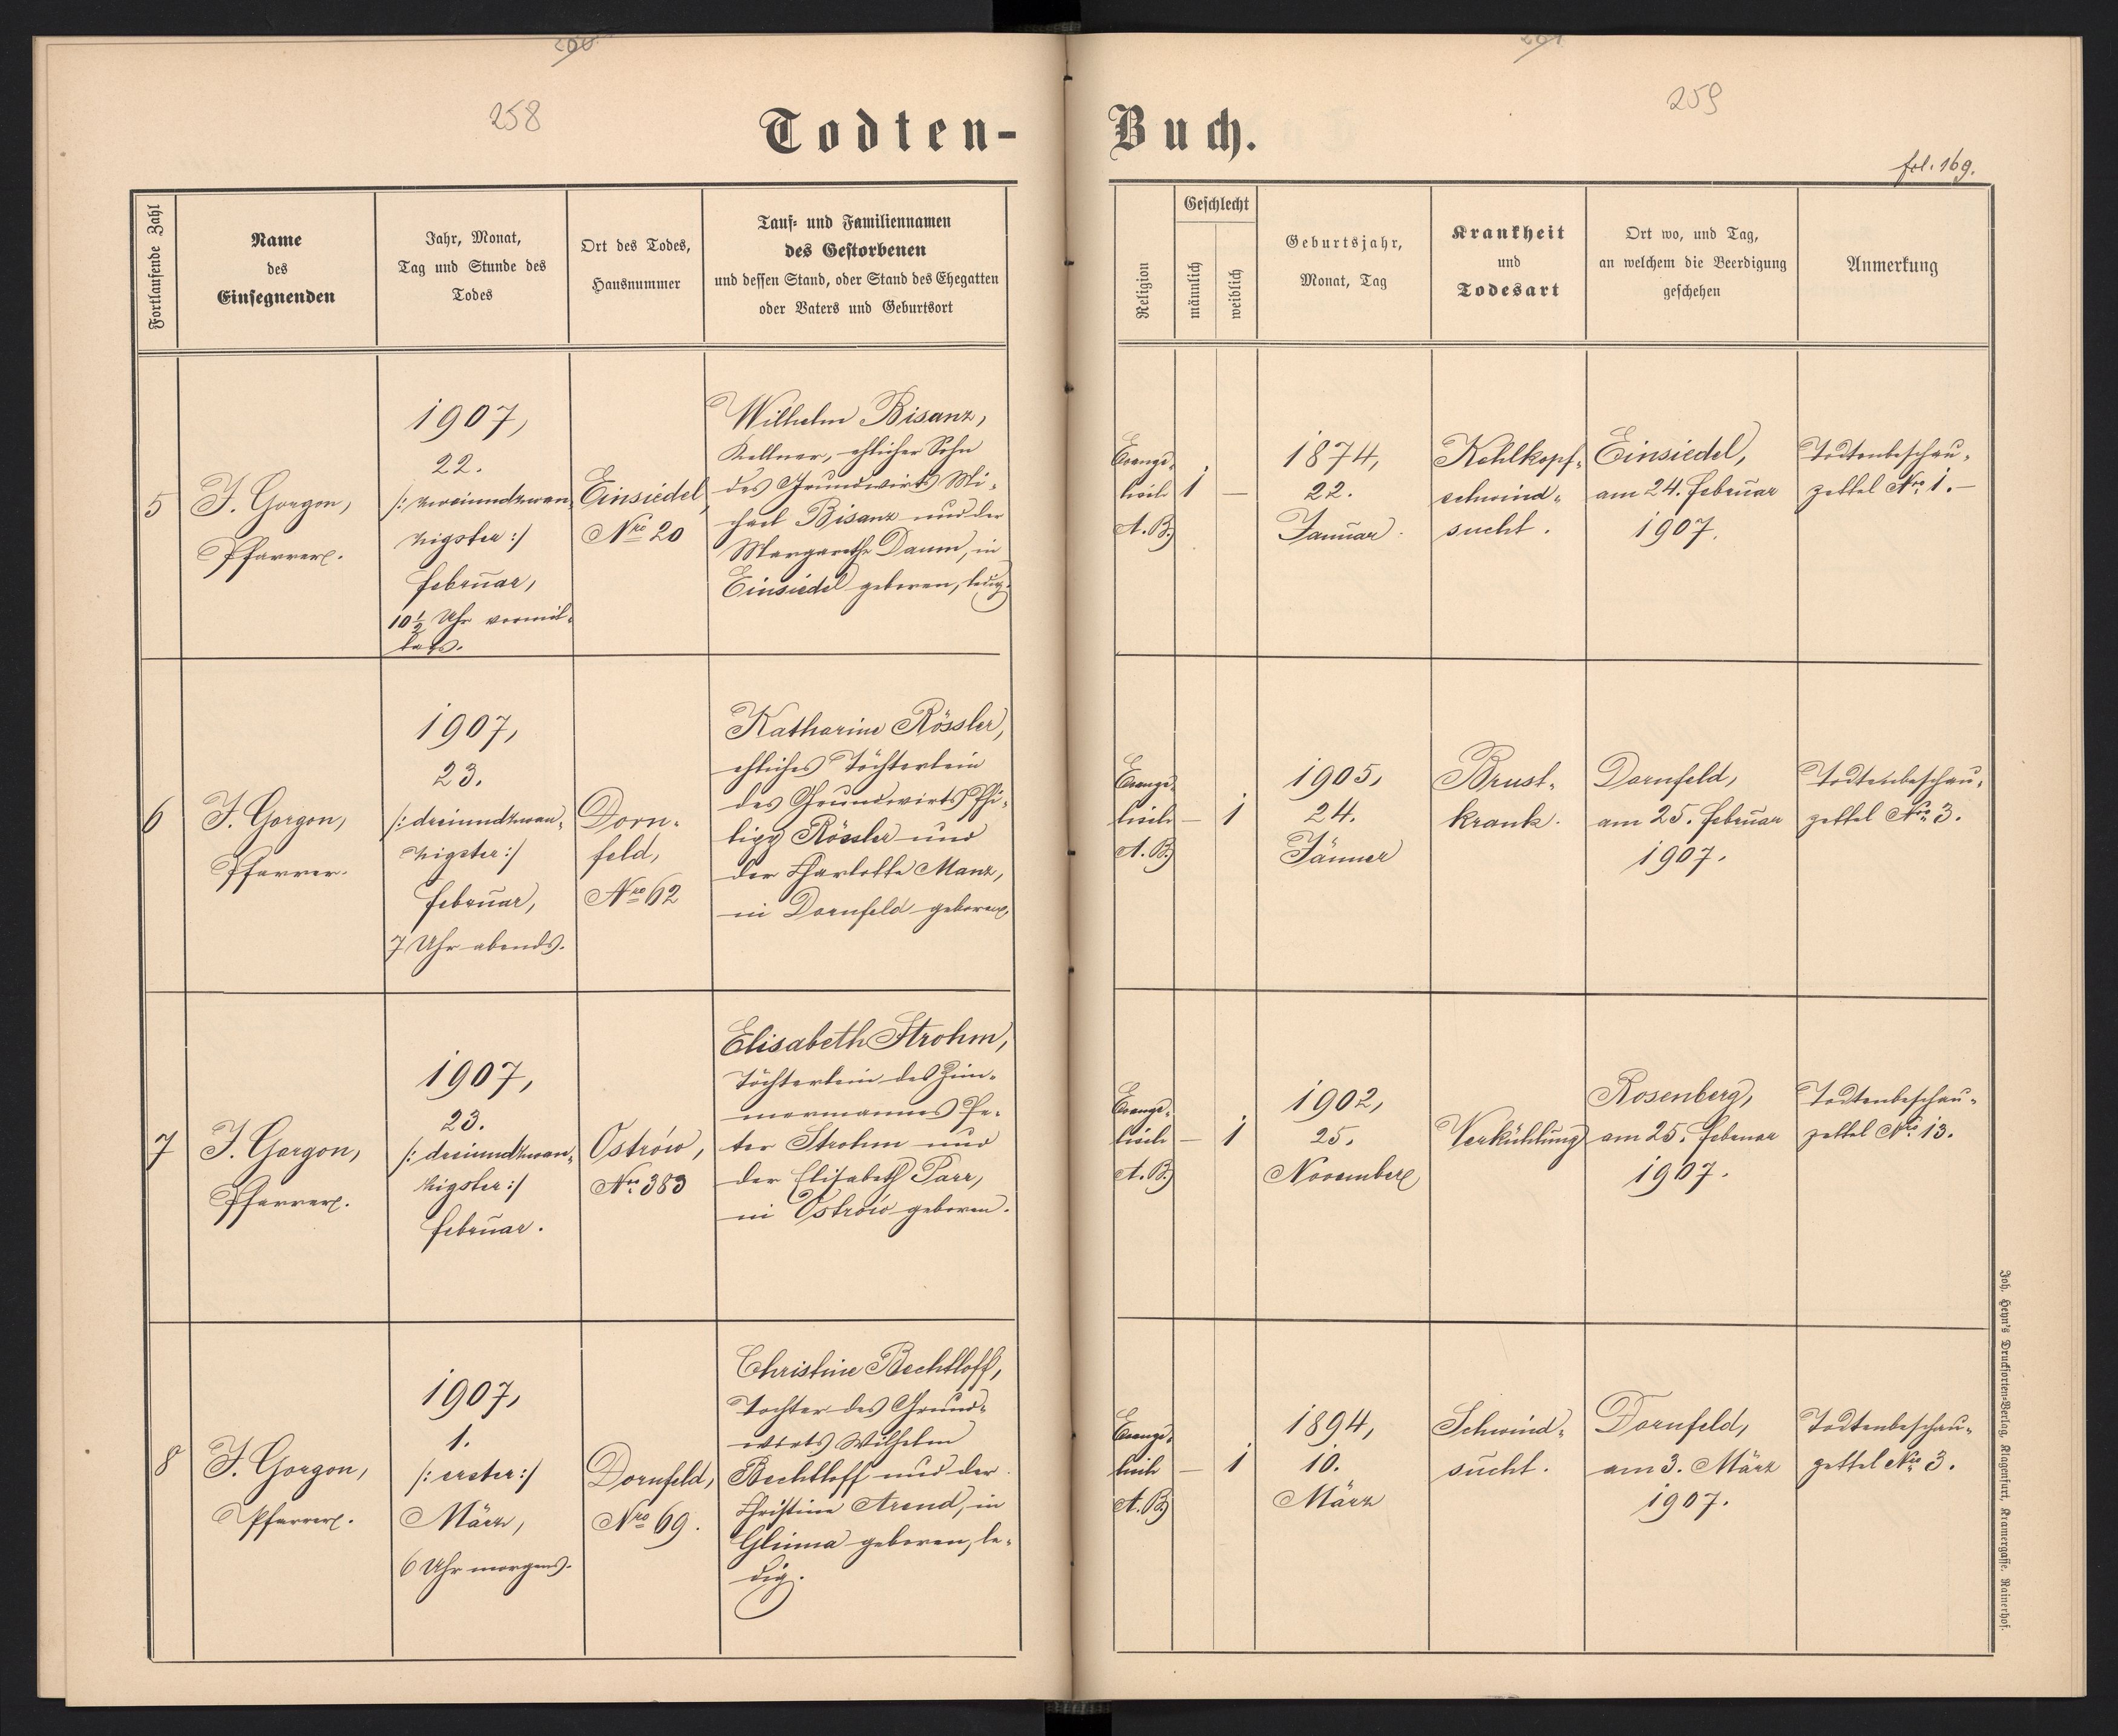 258
Todten-
Buch.
259
fol. 169.
Fortlaufende Zahl
Name
des
Einsegnenden
Jahr, Monat,
Tag und Stunde des
Todes
Ort des Todes,
Hausnummer
Tauf- und Familiennamen
des Gestorbenen
und dessen Stand, oder Stand des Ehegatten
oder Vaters und Geburtsort
Religion
Geschlecht
männlich
weiblich
Geburtsjahr,
Monat, Tag
Krankheit
und
Todesart
Ort wo, und Tag,
an welchem die Beerdigung
geschehen
Anmerkung
5
J. Gorgon,
Pfarrer.
1907,
22.
/: zweiundzwan-
zigster :/
Februar,
10 1/2 Uhr vormit-
tags.
Einsiedel,
Nro 20
Wilhelm Bisanz,
Kellner, ehlicher Sohn
des Grundwirts Mi-
chael Bisanz und der
Margarethe Daum, in
Einsiedel geboren, ledig.
Evange-
lisch
A. B.
1
—
1874,
22.
Januar.
Kehlkopf-
schwind-
sucht.
Einsiedel,
am 24. Februar
1907.
Todtenbeschau-
zettel Nro 1.—
6
J. Gorgon,
Pfarrer.
1907,
23.
/: dreiundzwan-
zigster :/
Februar,
7 Uhr abends.
Dorn-
feld,
Nro 62
Katharine Rössler,
ehliches Töchterlein
des Grundwirts Phi-
lipp Rössler und
der Charlotte Manz,
in Dornfeld geboren,
Evange-
lisch
A. B.
—
1
1905,
24.
Jänner
Brust-
krank.
Dornfeld,
am 25. Februar
1907.
Todtenbeschau-
zettel Nro 3.
7
J. Gorgon,
Pfarrer.
1907,
23.
/: dreiundzwan-
zigster :/
Februar.
Ostrów,
Nro 383
Elisabeth Strohm,
Töchterlein des Zim-
mermannes Pe-
ter Strohm und
der Elisabeth Parr,
in Ostrów geboren.
Evange-
lisch
A. B.
—
1
1902,
25.
November
Verkühlung
Rosenberg,
am 25. Februar
1907.
Todtenbeschau-
zettel Nro 13.
8
J. Gorgon,
Pfarrer.
1907,
1.
/: erster :/
März,
6 Uhr morgens.
Dornfeld,
Nro 69.
Christine Bechtloff,
Tochter des Grund-
wirts Wilhelm
Bechtloff und der
Christine Arend, in
Glinna geboren, le-
dig.
Evange-
lisch
A. B.
—
1
1894,
10.
März
Schwind-
sucht.
Dornfeld,
am 3. März
1907.
Todtenbeschau-
zettel Nro 3.
Joh. Heyn's Drucksorten-Verlag, Klagenfurt, Kramergasse. Rainerhof.